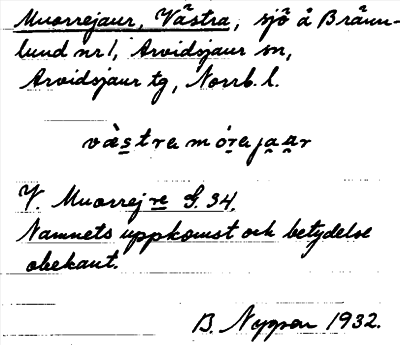 Muorrejaur, Västra, sjö å Bränn-
lund nr 1, Arvidsjaur sn,
Arvidsjaur tg, Norrb. l.
vä̀stra mórejaar
V. Muorrejre G. 34.
Namnets uppkomst och betydelse
obekant.
B. Nygren 1932.